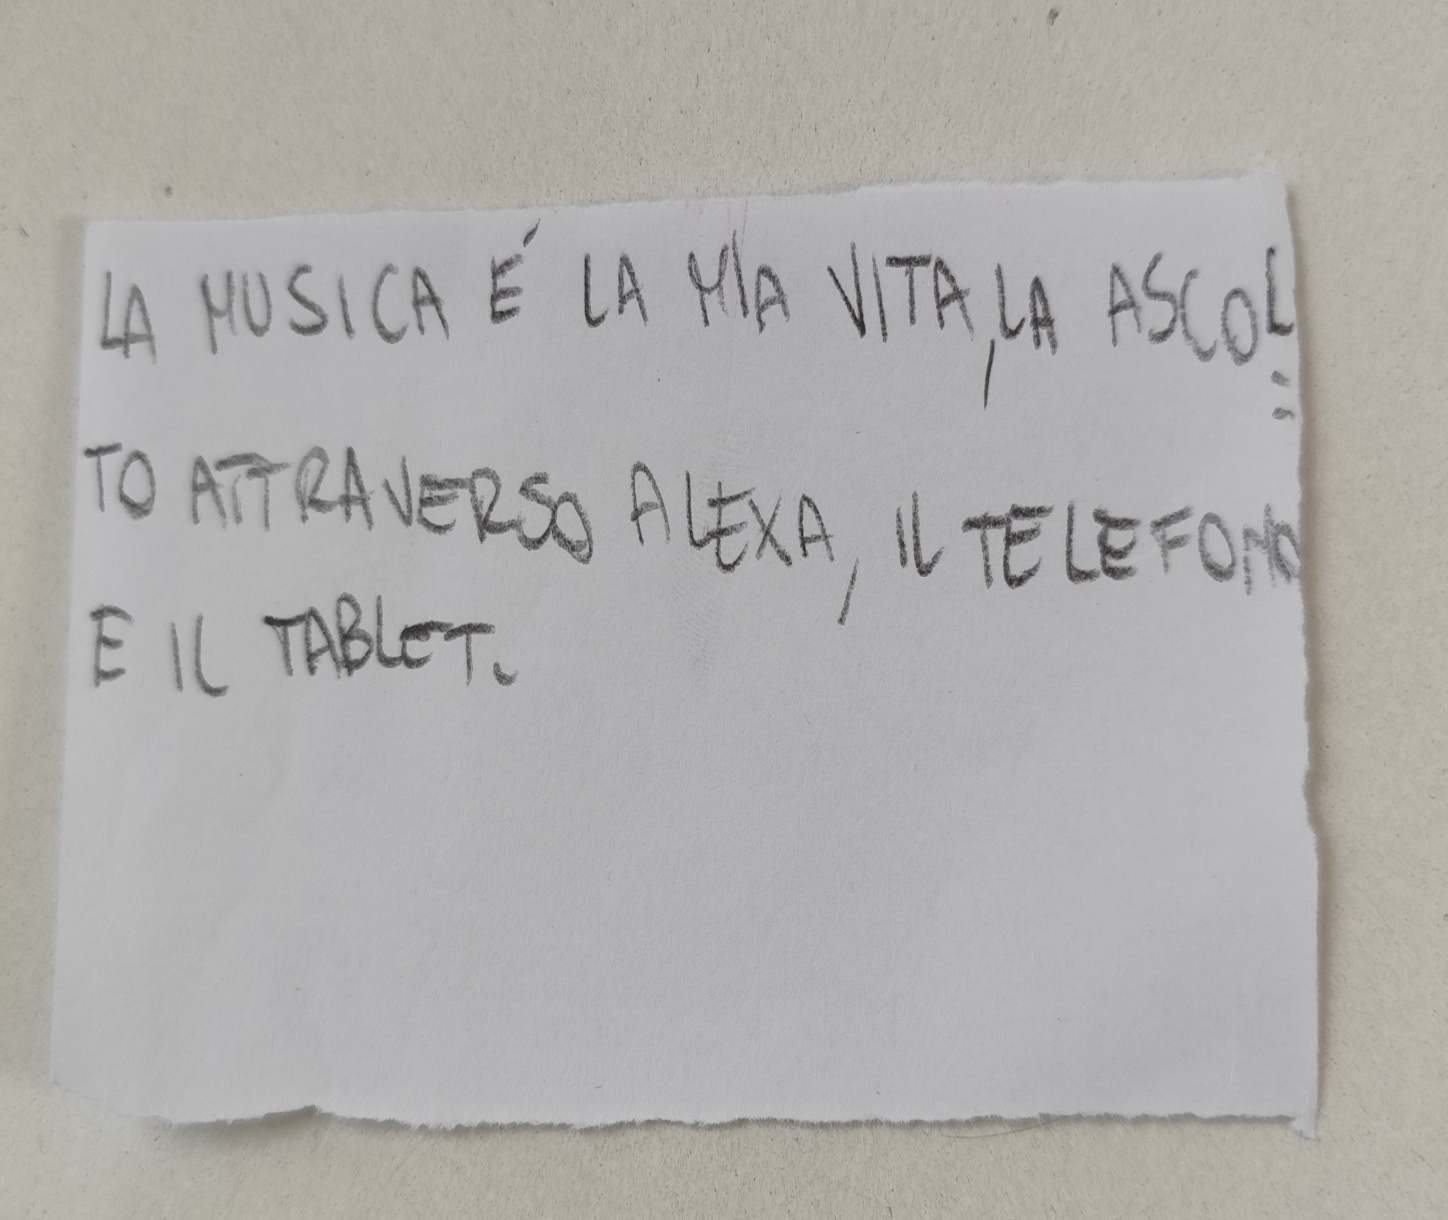 LA MUSICA É LA MIA VITA, LA ASCOL=
TO ATTRAVERSO ALEXA, IL TELEFONO
E IL TABLET.